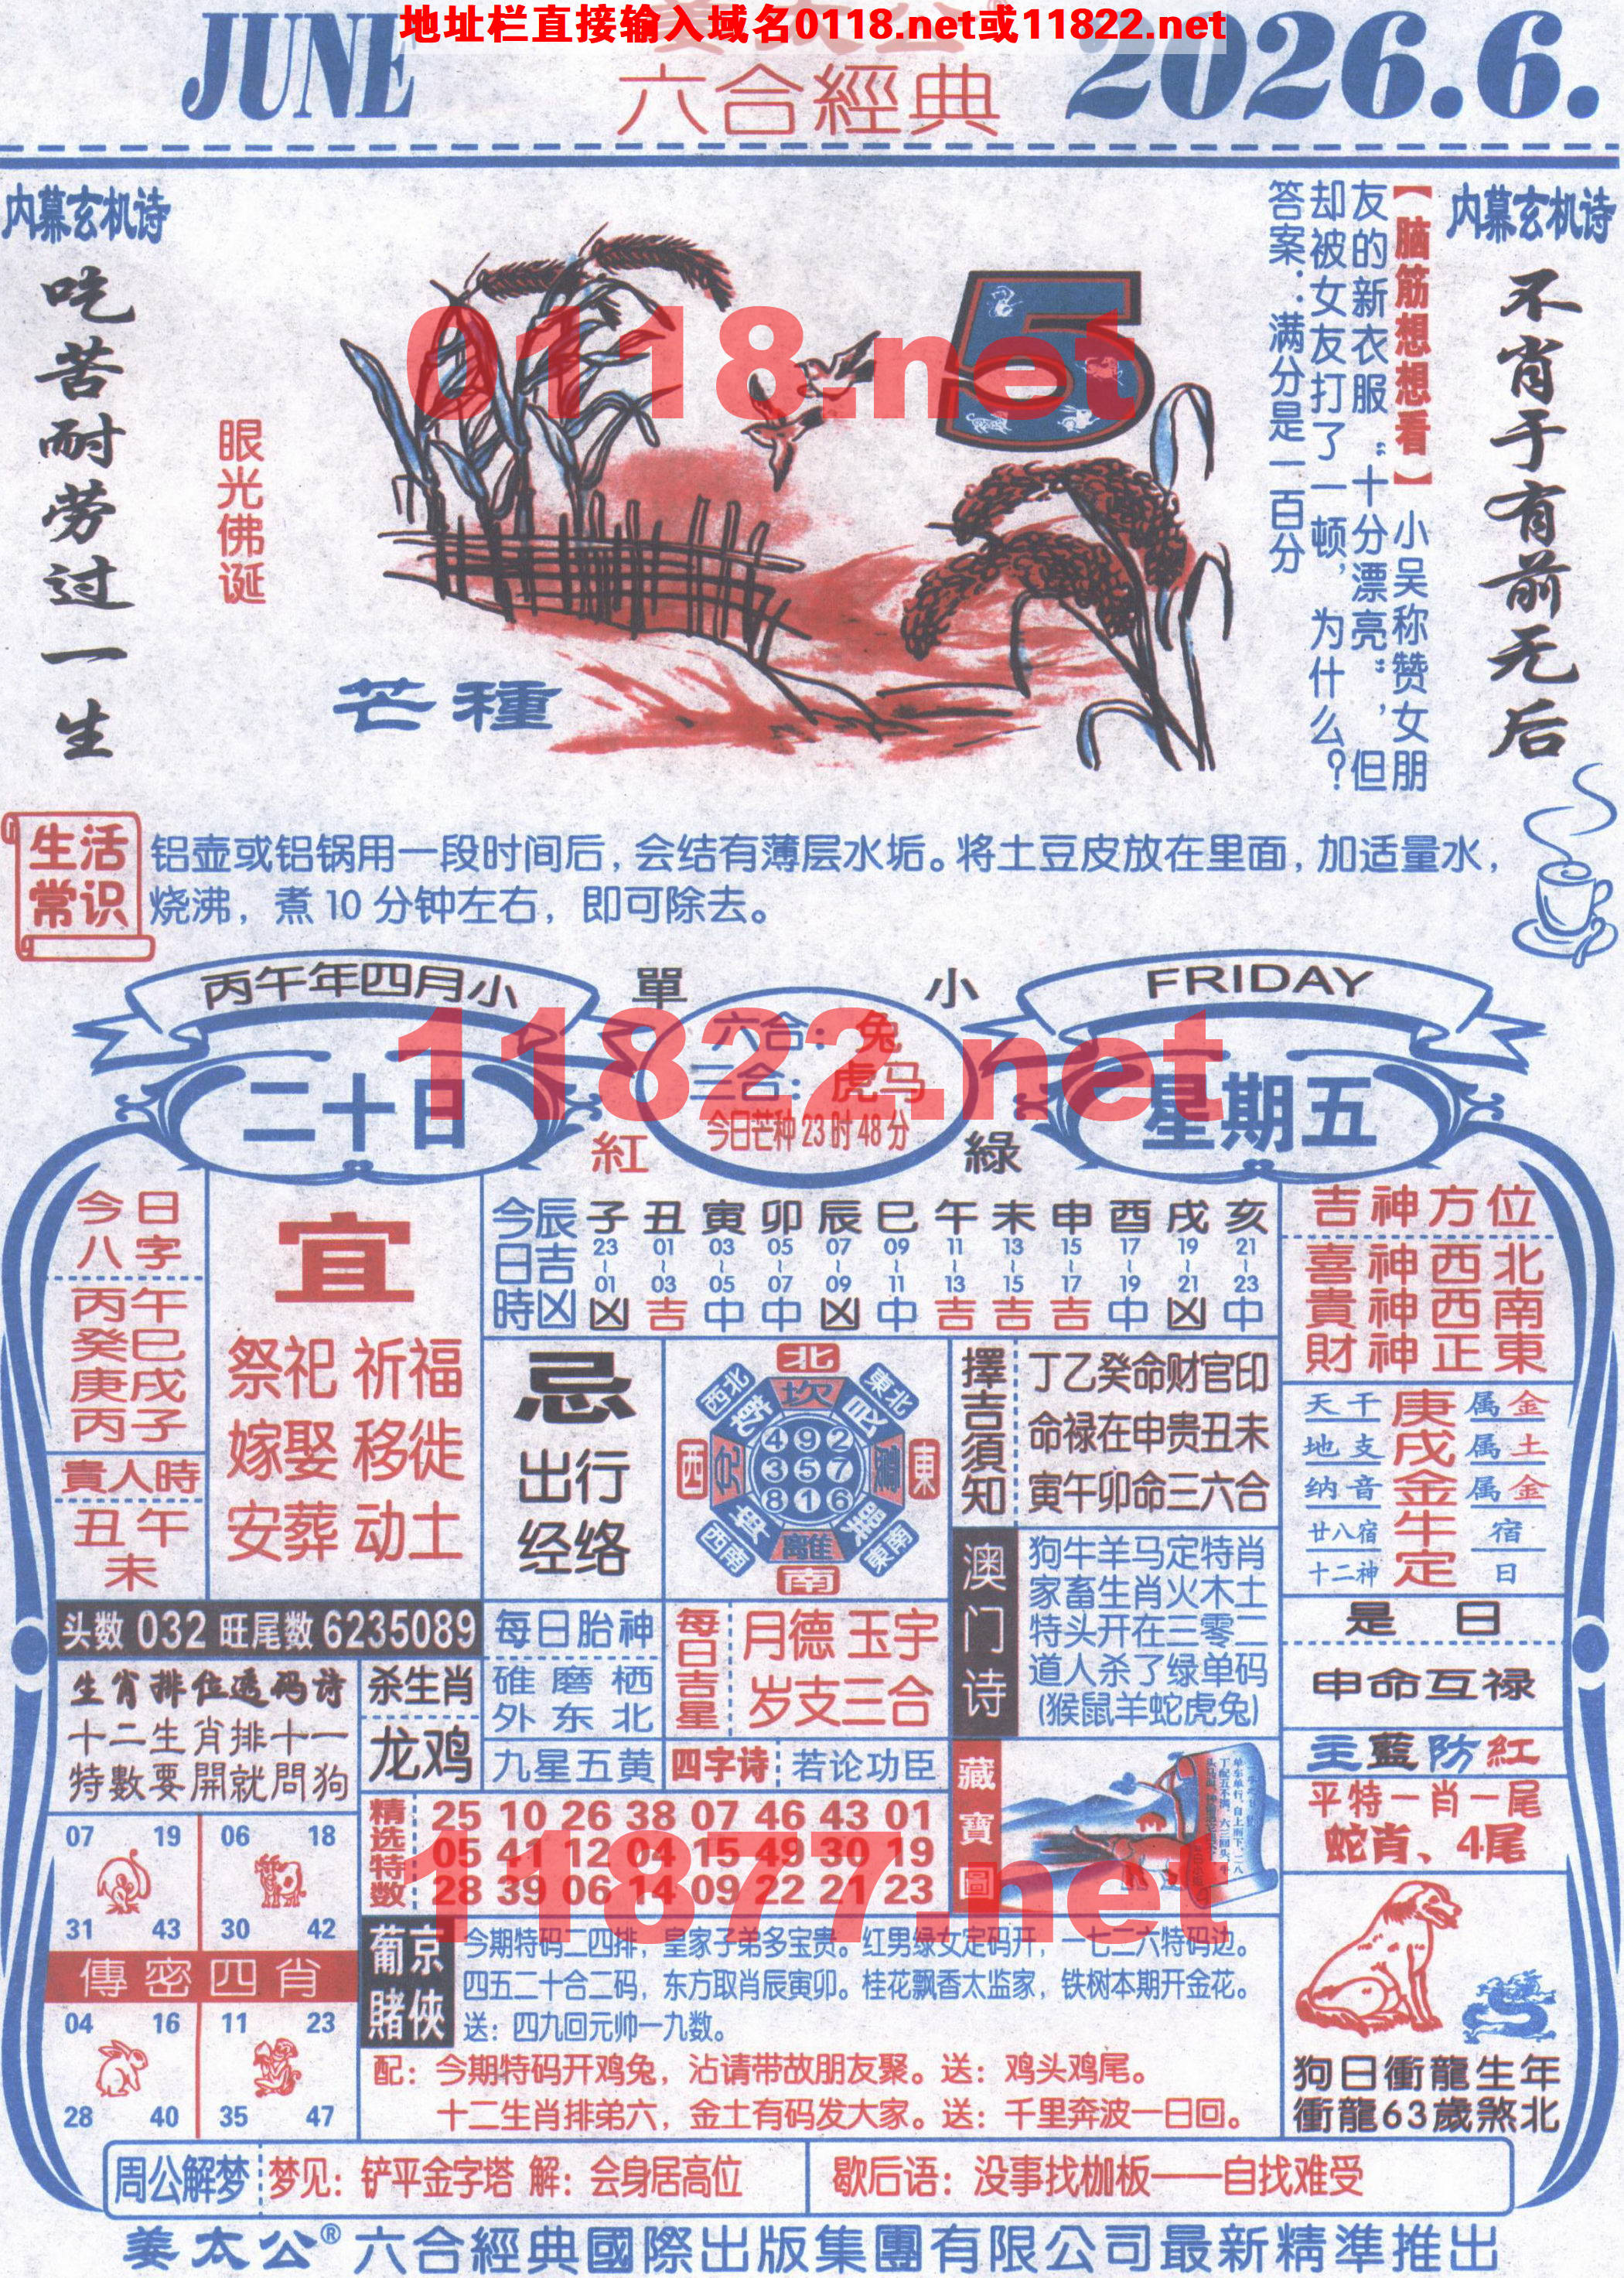 地址栏直接输入域名0118.net或11822.net
JUNE
六合經典
2026.6.
内幕玄机诗
吃苦耐劳过一生
眼光佛诞
0118.net
5
芒種
内幕玄机诗
不肖于有前无后
【脑筋想想看】小吴称赞女朋
友的新衣服“十分漂亮”，但
却被女友打了一顿，为什么？
答案：满分是一百分
生活
常识
铝壶或铝锅用一段时间后，会结有薄层水垢。将土豆皮放在里面，加适量水，
烧沸，煮10分钟左右，即可除去。
丙午年四月小
單
小
FRIDAY
二十日
六合：兔
三合：虎马
今日芒种23时48分
11822.net
星期五
紅
綠
今日
八字
丙午
癸巳
庚戌
丙子
貴人時
丑午
未
宜
祭祀 祈福
嫁娶 移徙
安葬 动土
今辰
日吉
時凶
子 丑 寅 卯 辰 巳 午 未 申 酉 戌 亥
23~01 01~03 03~05 05~07 07~09 09~11 11~13 13~15 15~17 17~19 19~21 21~23
凶 吉 中 中 凶 中 吉 吉 吉 中 凶 中
吉神方位
喜神西北
貴神西南
財神正東
忌
出行
经络
北
西北 坎 東北
艮
西 兌 東
492
357
816
西南 離 東南
南
擇吉須知
丁乙癸命财官印
命禄在申贵丑未
寅午卯命三六合
天干 庚 属金
地支 戌 属土
纳音 金 属金
廿八宿 牛 宿
十二神 定 日
澳门诗
狗牛羊马定特肖
家畜生肖火木土
特头开在三零二
道人杀了绿单码
(猴鼠羊蛇虎兔)
是日
申命互禄
主藍防紅
平特一肖一尾
蛇肖、4尾
头数 032 旺尾数 6235089
生肖排位透码诗
十二生肖排十一
特數要開就問狗
杀生肖
龙鸡
每日胎神
碓磨栖
外东北
九星五黄
每日吉星
月德 玉宇
岁支三合
四字诗 若论功臣
藏寶圖
精选特数
25 10 26 38 07 46 43 01
05 41 12 04 15 49 30 19
28 39 06 14 09 22 21 23
11877.net
07 19 06 18
31 43 30 42
傳密四肖
04 16 11 23
28 40 35 47
葡京
賭俠
今期特码二四排，皇家子弟多宝贵。红男绿女定码开，一七二六特码边。
四五二十合二码，东方取肖辰寅卯。桂花飘香太监家，铁树本期开金花。
送：四九回元帅一九数。
配：今期特码开鸡兔，沾请带故朋友聚。送：鸡头鸡尾。
十二生肖排弟六，金土有码发大家。送：千里奔波一日回。
狗日衝龍生年
衝龍63歲煞北
周公解梦 梦见：铲平金字塔 解：会身居高位
歇后语：没事找枷板——自找难受
姜太公®六合經典國際出版集團有限公司最新精準推出